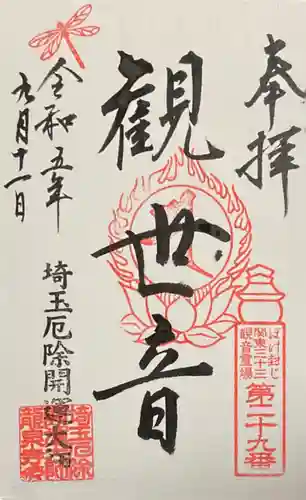 奉拝
ぼけ封じ
関東三十三
観音霊場
第二十九番
観世音
令和五年
九月十一日
埼玉厄除開運大師
埼玉厄除